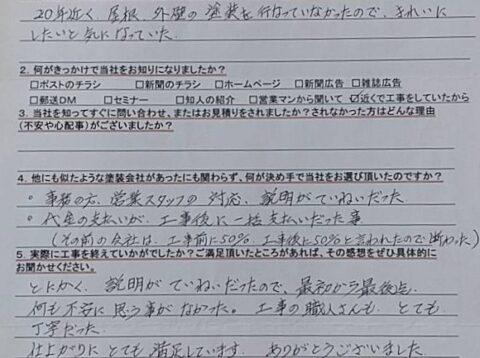 20年近く、屋根、外壁の塗装を行なっていなかったので、きれいに
したいと気になっていた。
2. 何がきっかけで当社をお知りになりましたか?
□ポストのチラシ □新聞のチラシ □ホームページ □新聞広告 □雑誌広告
□郵送DM □セミナー □知人の紹介 □営業マンから聞いて ☑近くで工事をしていたから
3. 当社を知ってすぐに問い合わせ、またはお見積りをされましたか?されなかった方はどんな理由
(不安や心配事)がございましたか?
4. 他にも似たような塗装会社があったにも関わらず、何が決め手で当社をお選び頂いたのですか?
・事務の方、営業スタッフの対応、説明がていねいだった
・代金の支払いが、工事後に一括支払いだった事
(その前の会社は、工事前に50%、工事後に50%と言われたので断わった)
5. 実際に工事を終えていかがでしたか?ご満足頂いたところがあれば、その感想をぜひ具体的に
お聞かせください。
とにかく、説明がていねいだったので、最初から最後迄
何も不安に思う事がなかった。工事の職人さんも、とても
丁寧だった。
仕上がりにとても満足しています。ありがとうございました